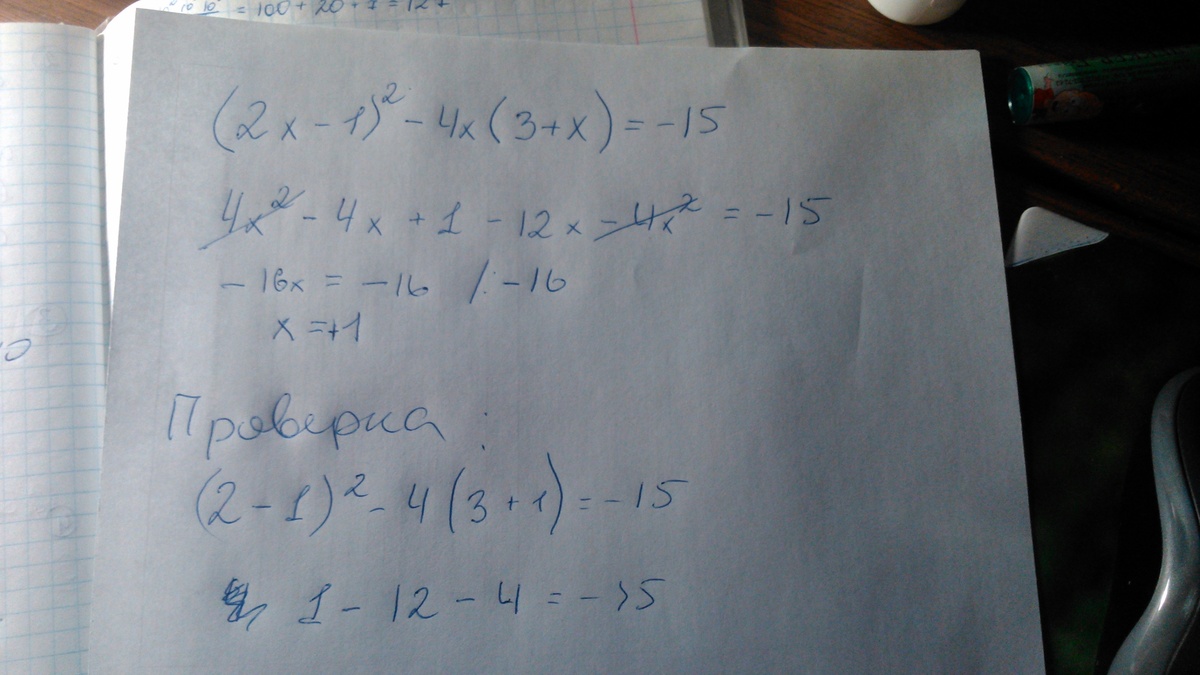 = 100 + 20 + 7 = 127
(2x - 1)² - 4x(3+x) = -15
4x² - 4x + 1 - 12x - 4x² = -15
- 16x = -16 /: -16
x = +1
Проверка:
(2 - 1)² - 4(3 + 1) = -15
1 - 12 - 4 = -15